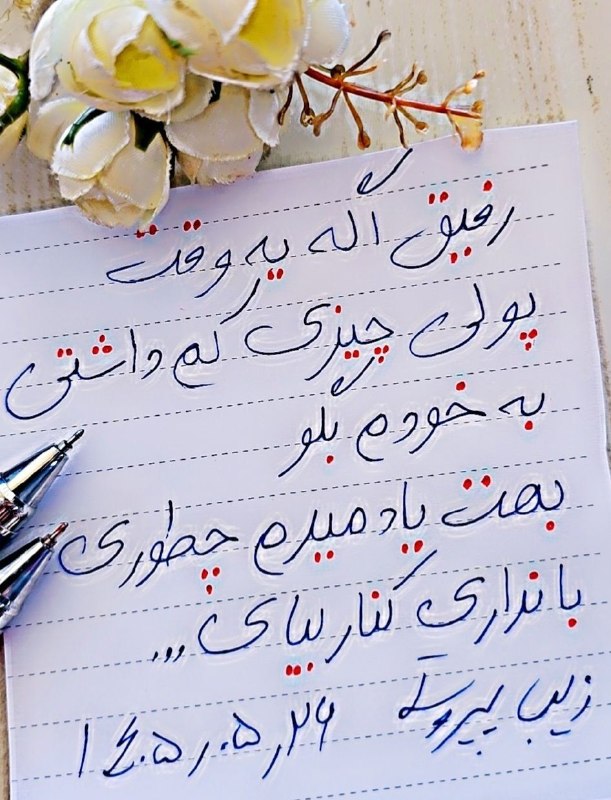 رفیق اگه یه وقت
پولی چیزی کم داشتی
به خودم بگو
بهت یاد میدم چطوری
با نداری کنار بیای...
زینب
۱۴۰۵،۰۵،۲۶